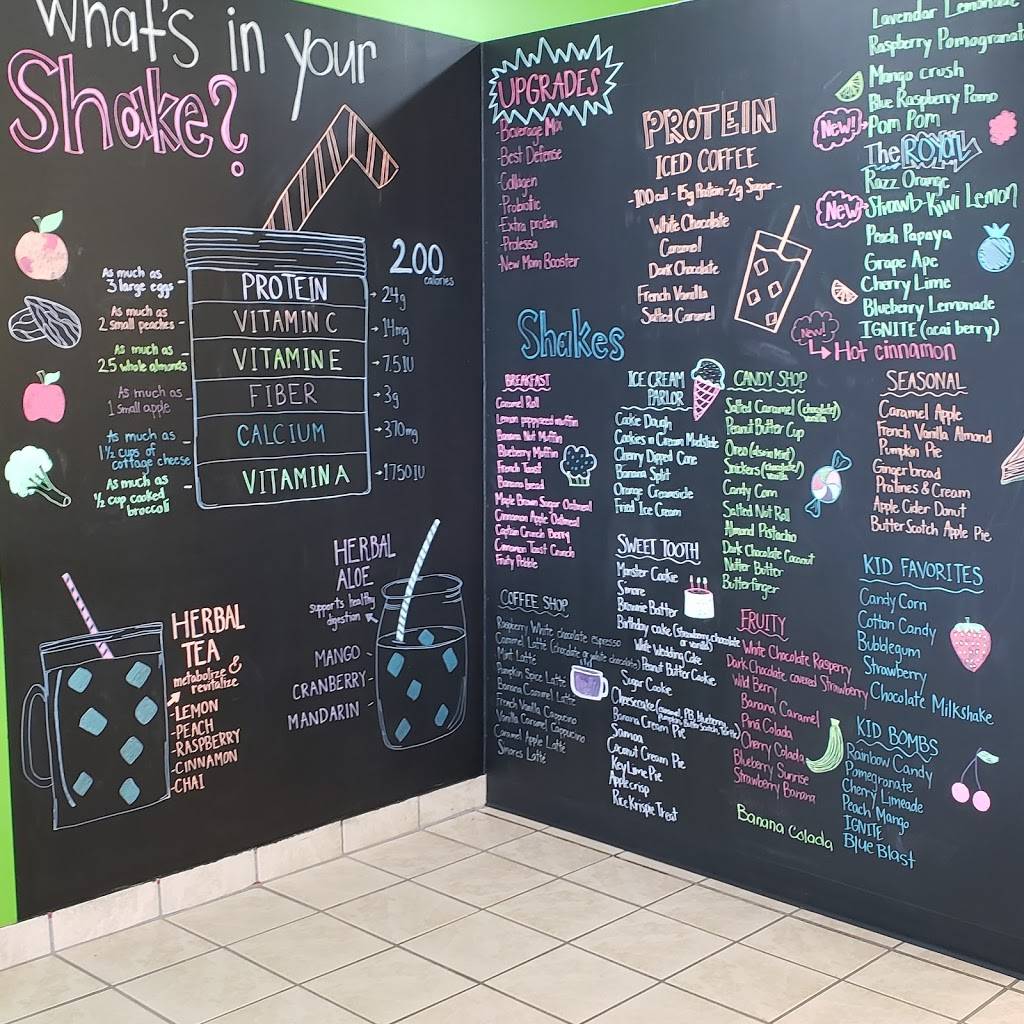 What's in your
Shake?
200
calories
As much as
3 large eggs
PROTEIN
24g
As much as
2 small peaches
VITAMIN C
14mg
As much as
25 whole almonds
VITAMIN E
7.5 IU
As much as
1 small apple
FIBER
3g
As much as
1 1/2 cups of
cottage cheese
CALCIUM
370mg
As much as
1/2 cup cooked
broccoli
VITAMIN A
1750 IU
HERBAL
TEA
metabolize &
revitalize
-LEMON
-PEACH
-RASPBERRY
-CINNAMON
-CHAI
HERBAL
ALOE
supports healthy
digestion
MANGO
CRANBERRY
MANDARIN
UPGRADES
-Beverage Mix
-Best Defense
-Collagen
-Probiotic
-Extra protein
-Prolessa
-New Mom Booster
PROTEIN
ICED COFFEE
-100 cal - 15g Protein - 2g Sugar-
White Chocolate
Caramel
Dark Chocolate
French Vanilla
Salted Caramel
Lavendar Lemonade
Raspberry Pomagranat
Mango crush
Blue Raspberry Pomo
New! Pom Pom
The ROYAL
Razz Orange
New Strawb-Kiwi Lemon
Peach Papaya
Grape Ape
Cherry Lime
Blueberry Lemonade
IGNITE (acai berry)
New!
Hot cinnamon
Shakes
BREAKFAST
Caramel Roll
Lemon poppyseed muffin
Banana Nut Muffin
Blueberry Muffin
French Toast
Banana bread
Maple Brown Sugar Oatmeal
Cinnamon Apple Oatmeal
Captain Crunch Berry
Cinnamon Toast Crunch
Fruity Pebble
COFFEE SHOP
Raspberry White chocolate espresso
Caramel Latte (chocolate or white chocolate)
Mint Latte
Pumpkin Spice Latte
Banana Caramel Latte
French Vanilla Cappucino
Vanilla Caramel Cappuccino
Caramel Apple Latte
Smores Latte
ICE CREAM
PARLOR
Cookie Dough
Cookies n Cream
Cherry Dipped Cone
Banana Split
Orange Creamsicle
Fried Ice Cream
SWEET TOOTH
Monster Cookie
Smore
Brownie Batter
Birthday cake (strawberry, chocolate
or vanilla)
White Wedding Cake
Peanut Butter Cookie
Sugar Cookie
Cheesecake (caramel, PB, blueberry,
Pumpkin, Butter Scotch,
Banana Cream Pie
Samoa
Coconut Cream Pie
Key Lime Pie
Apple crisp
Rice Krispie Treat
CANDY SHOP
Salted Caramel (chocolate/
vanilla)
Peanut Butter Cup
Oreo (also in Mint)
Snickers (chocolate/
vanilla)
Candy Corn
Salted Nut Roll
Almond Pistachio
Dark Chocolate Coconut
Nutter Butter
Butterfinger
FRUITY
White Chocolate Rasperry
Dark Chocolate covered Strawberry
Wild Berry
Banana Caramel
Pina Colada
Cherry Colada
Blueberry Sunrise
Strawberry Banana
Banana Colada
SEASONAL
Caramel Apple
French Vanilla Almond
Pumpkin Pie
Gingerbread
Pralines & Cream
Apple Cider Donut
Butter Scotch Apple Pie
KID FAVORITES
Candy Corn
Cotton Candy
Bubblegum
Strawberry
Chocolate Milkshake
KID BOMBS
Rainbow Candy
Pomegranate
Cherry Limeade
Peach Mango
IGNITE
Blue Blast